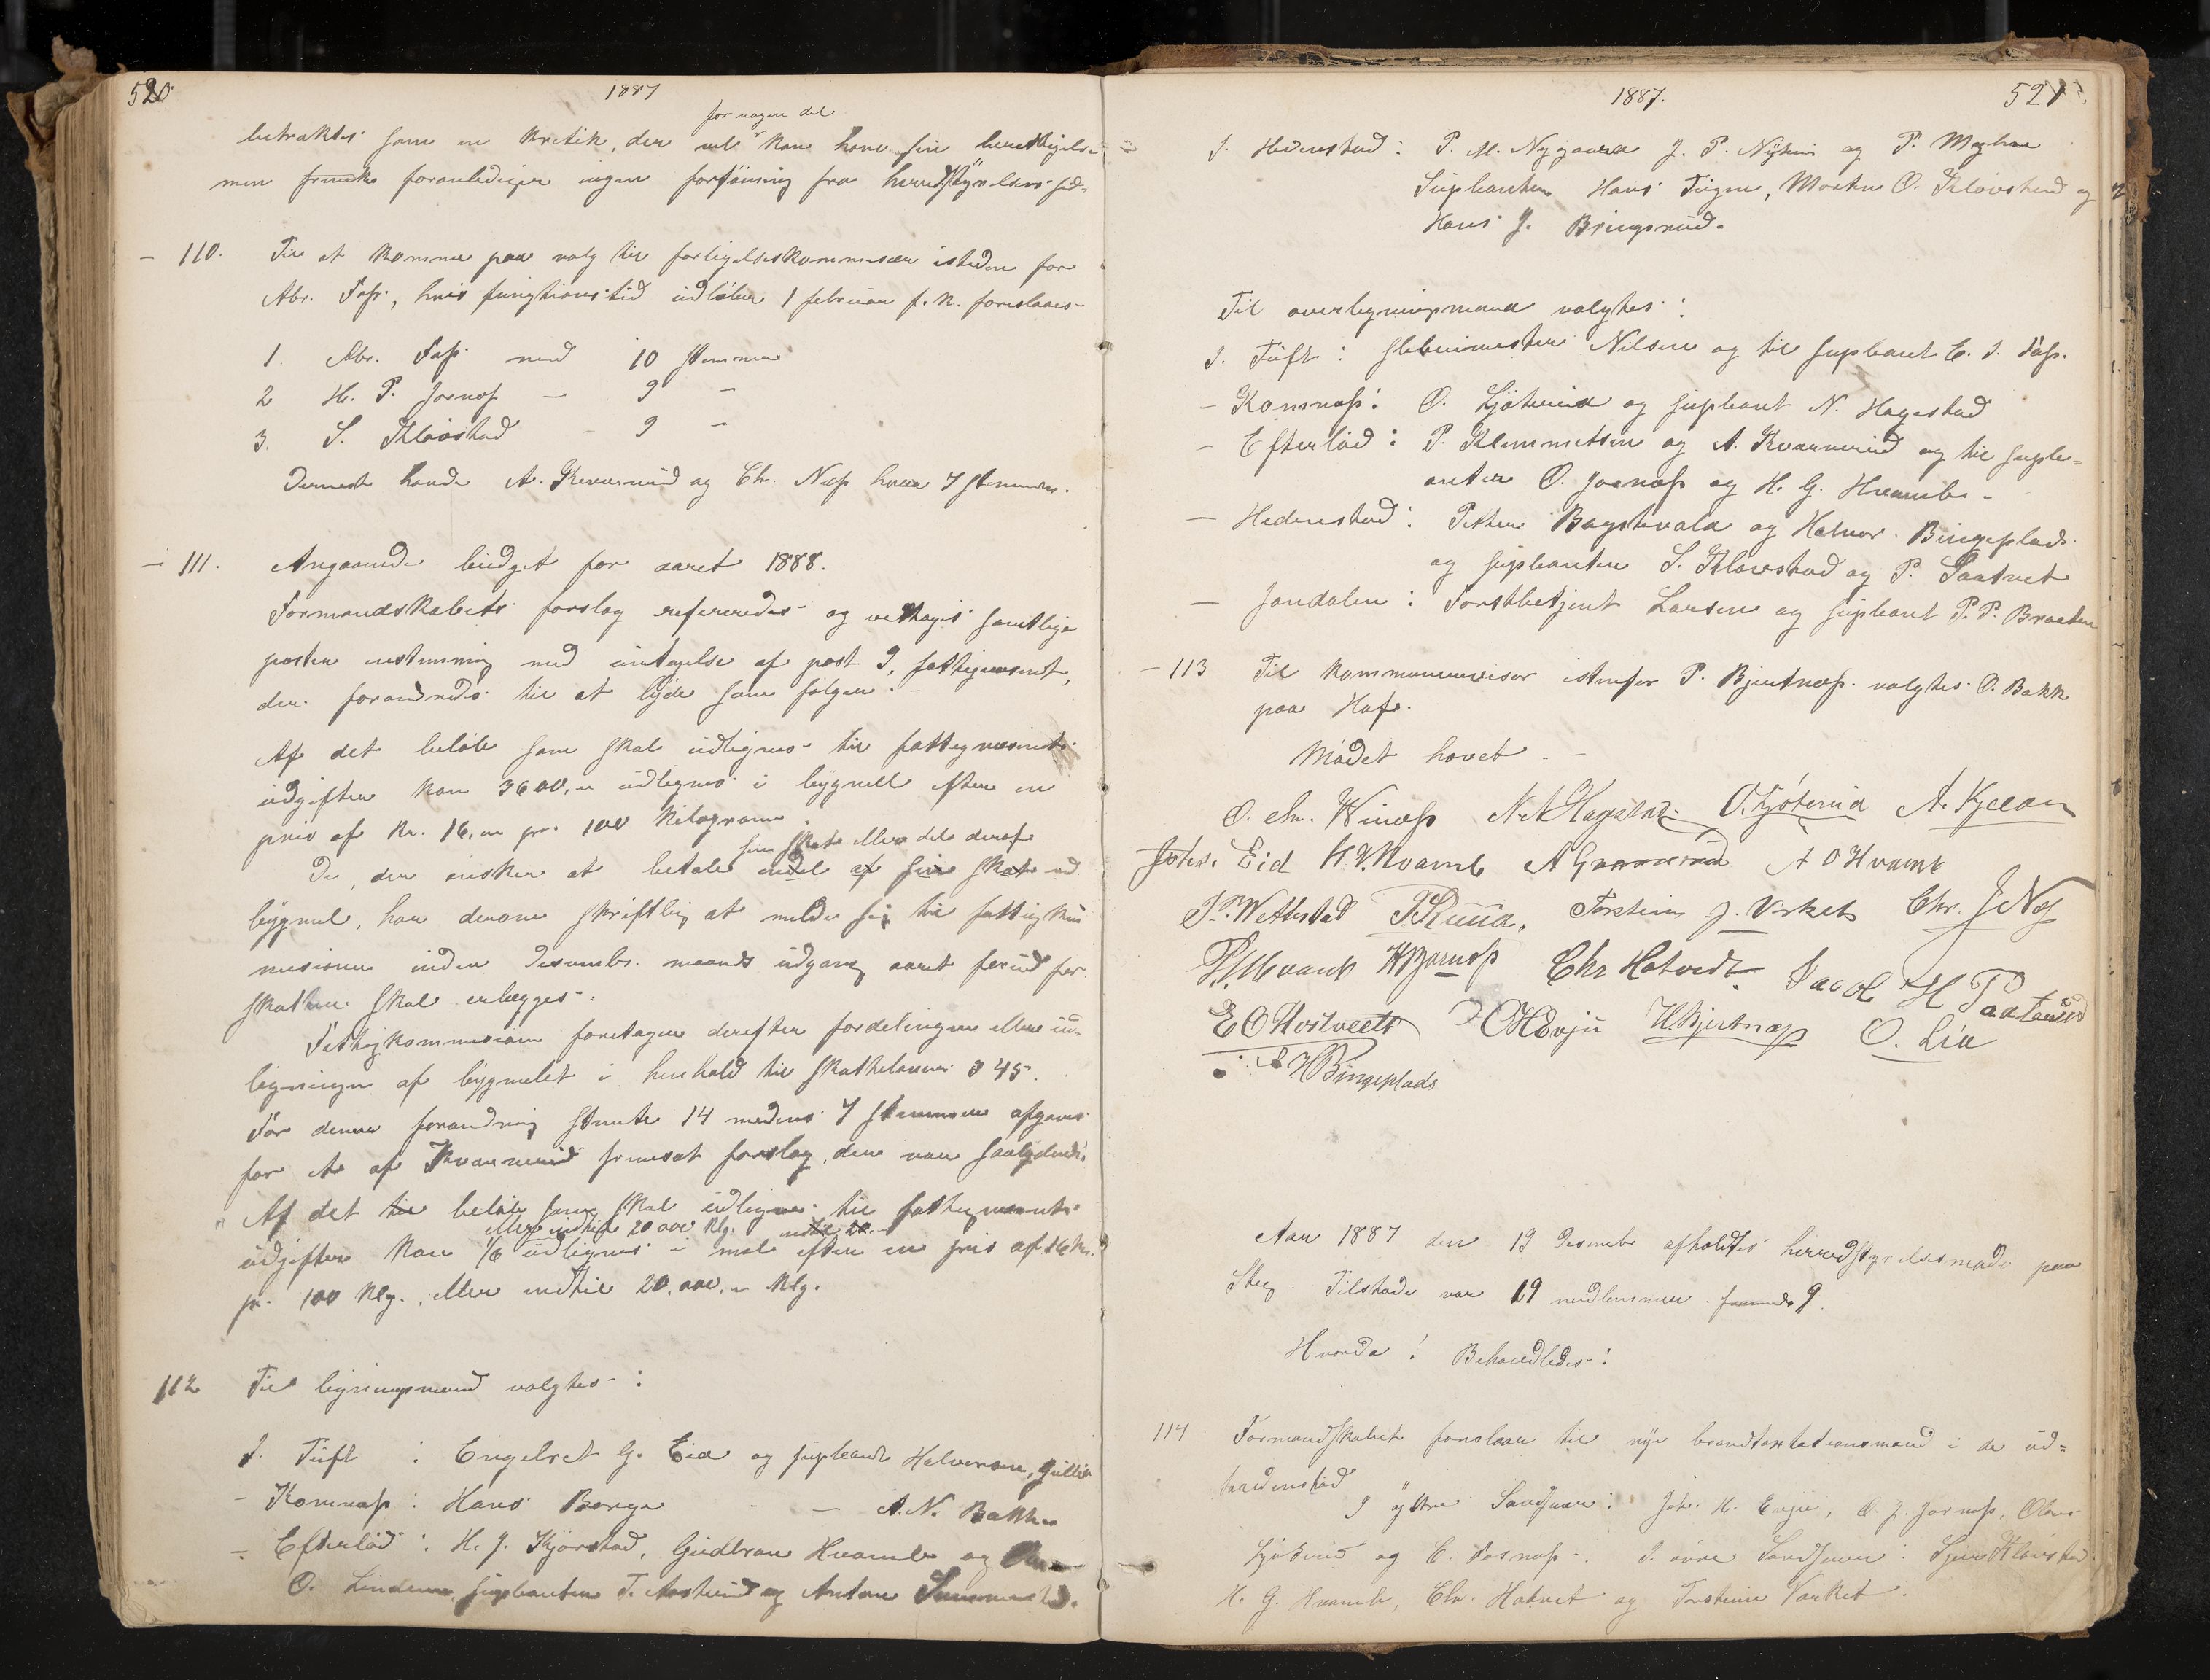 520
1887
for nogen del
betraktes som en kritik, der vel kan have sin berettigelse
men foranlediger ingen forføining fra herredsstyrelsens side
- 110. Til at komme paa valg til forligelseskommissær isteden for
Abr. Fass, hvis fungtionstid udløber 1 februar f. k. foreslaaes
1. Abr. Fass med 10 stemmer
2 H. P. Jornæss — 9 —
3. S. Kløvstad - 9 —
Dernæst havde A. Kvarnerud og Chr. Næss hver 7 stemmer.
- 111. Angaaende budget for aaret 1888.
Formandskabets forslag refereredes og vedtoges samtlige
poster enstemmig med undtagelse af post 9, fattigvæsenet,
der forandredes til at lyde som følger:
Af det beløb som skal udlignes til fattigvæsenets
udgifter kan 3600,00 udlignes i bygmell efter en
pris af kr. 16,00 pr. 100 kilogram
sin skat eller dele deraf
De, der ønsker at betale endel af sin skat ved
bygmel, har derom skriftlig at melde sig til fattigkom
misionen inden desember maaneds udgang aaret forud for
skatten skal erlægges.
Fattigkommisionen foretager derefter fordelingen eller ud-
ligningen af bygmelet i henhold til skatteloven § 45.
For denne forandring stemte 14 medens 7 stemmer afgaves
for et af Kvarnerud fremsat forslag, der var saalydende:
" Af det til beløb som skal udlignes til fattigvæsenets
eller indtil 20 000 klg. indtil 20.
udgifter kan 1/6 udlignes i mel efter en pris af 16 kr.
pr. 100 klg., eller indtil 20,000,00 klg.
112 Til ligningsmænd valgtes:
I. Tuft : Engebret G. Eid og supleant Halvorsen, Gullik
- Komnæss : Hans Berge - — A. N. Bakken
- Efterløb : H. J. Kjørstad, Gudbran Hvamb og
O. Linderen, supleanter T. Aasterud og Anton
1887.
521
I. Hedenstad : P. M. Nygaard J. P. Nykus og P. Myhre
Supleanter Hans Tugen, Morten O. Kløvstad og
Hans J. Bringsrud.
Til overligningsmænd valgtes :
I. Tuft : slebemester Nilsen og til supleant E. I. Fass.
- Komnæss : O. Ljøterud og supleant N. Hagestad
- Efterløb : P. Klemmetsen og A. Kvarnerud og til suple=
anter O. Jornæss og H. G. Hvambe -
- Hedenstad : Petter Bagstevold og Halvor Bingeplads
og supleanter S. Kløvstad og P. Saatvet
— Jondalen : Forstbetjent Larsen og supleant P. P. Braaten
- 113 Til kommunerevisor istedfor P. Bjertnæss valgtes O. Bakk
paa Hof.
Mødet hævet. -
O. Chr. Winæss N. A. Hagestad. O. Ljøterud A. Kjelan
Johs. Eid H. G. Kvamb A Gvarnerud A O Hvamb
P. Wettestad P. Ruud, Torsten J. Vorket Chr. J Næs
P. Hvamb H P Jornæss Chr Hotvedt. Jacob H Taaterud
E O Hvitveett O H Evju H. Bjertnæss O. Lia
H Bingeplads
Aar 1887 den 19 desember afholdtes herredsstyrelsesmøde paa
Steg. Tilstede var 19 medlemmer. 9.
Hvorda! Behandledes:
114 Formandskabet foreslaar til nye brandtaxtationsmænd i de ud=
traadtes sted
I ytre Sandsvær: Joh. H. Evju, O. J. Jornæss, Olaves
Ljøterud og C. Fosnæss. I øvre Sandsvær: Syver Kløvstad
H. G. Hvamb, Chr. Hotvet og Torstein Vorket.